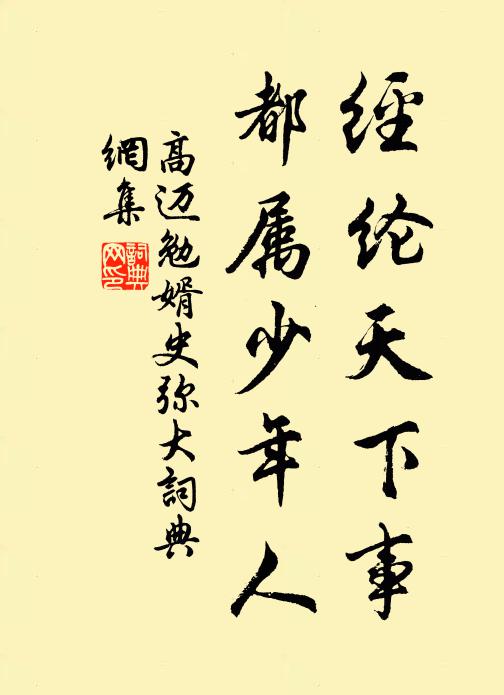 經纶天下事
都属少年人
高迈勉婿史弥大詞典
網集
詞典
网印